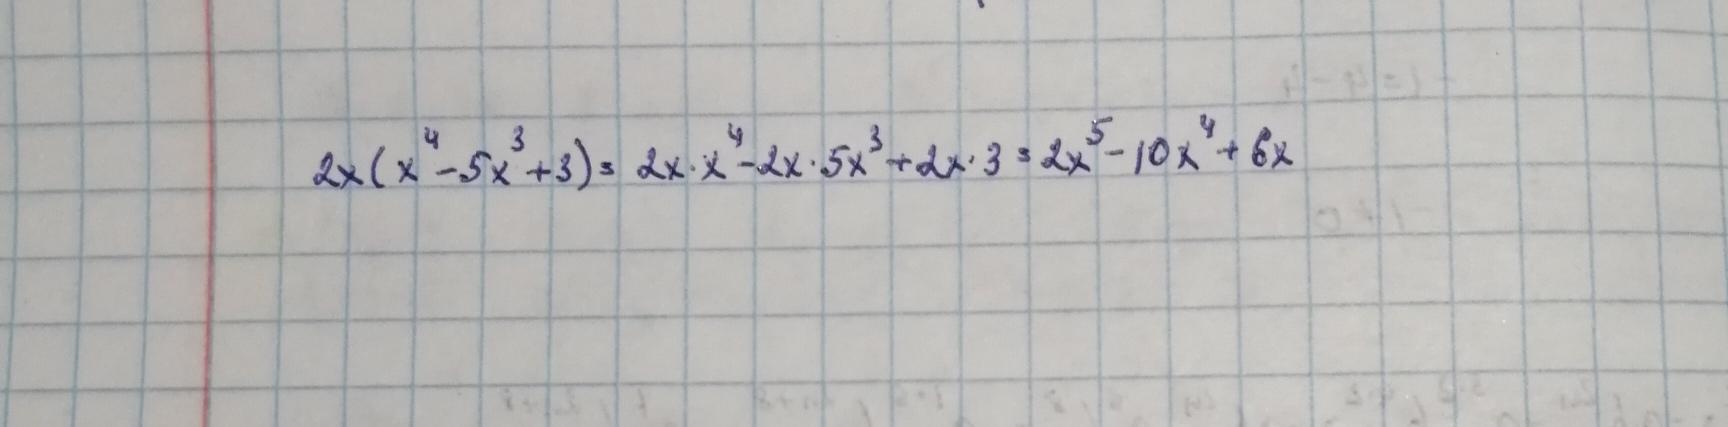 2x(x⁴-5x³+3)= 2x·x⁴-2x·5x³+2x·3=2x⁵-10x⁴+6x